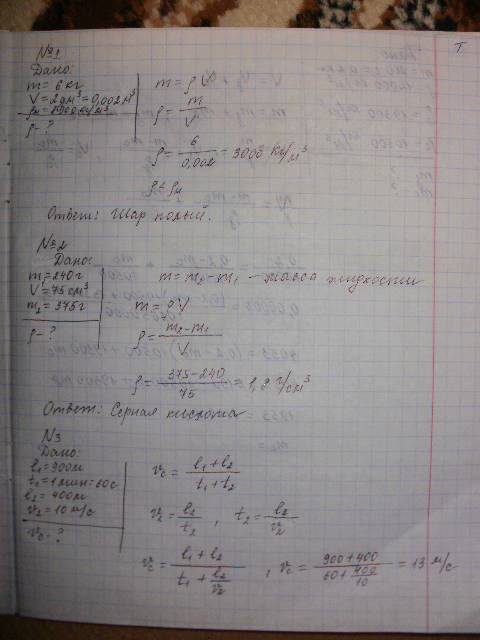 T
№1
Дано:
m = 6 кг
V = 2 дм³ = 0,002 м³
ρм = 8900 кг/м³
ρ - ?
m = ρV
ρ = m/V
ρ = 6/0,002 = 3000 кг/м³
ρ < ρм
Ответ: Шар полый.
№2
Дано:
m₁ = 240 г
V = 75 см³
m₂ = 375 г
ρ - ?
m = m₂ - m₁ - масса жидкости
m = ρV
ρ = (m₂ - m₁)/V
ρ = (375 - 240)/75 = 1,8 г/см³
Ответ: Серная кислота
№3
Дано:
l₁ = 900 м
t₁ = 1 мин = 60 с
l₂ = 400 м
v₂ = 10 м/с
vс - ?
vс = (l₁ + l₂)/(t₁ + t₂)
v₂ = l₂/t₂ , t₂ = l₂/v₂
vс = (l₁ + l₂)/(t₁ + l₂/v₂) , vс = (900 + 400)/(60 + 400/10) = 13 м/с